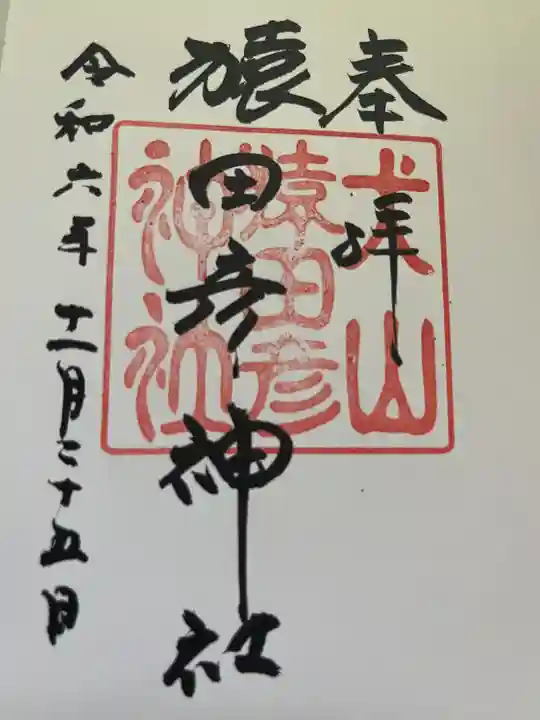 奉拝
犬山
猿田彦
神社
猿田彦神社
令和六年十一月二十五日